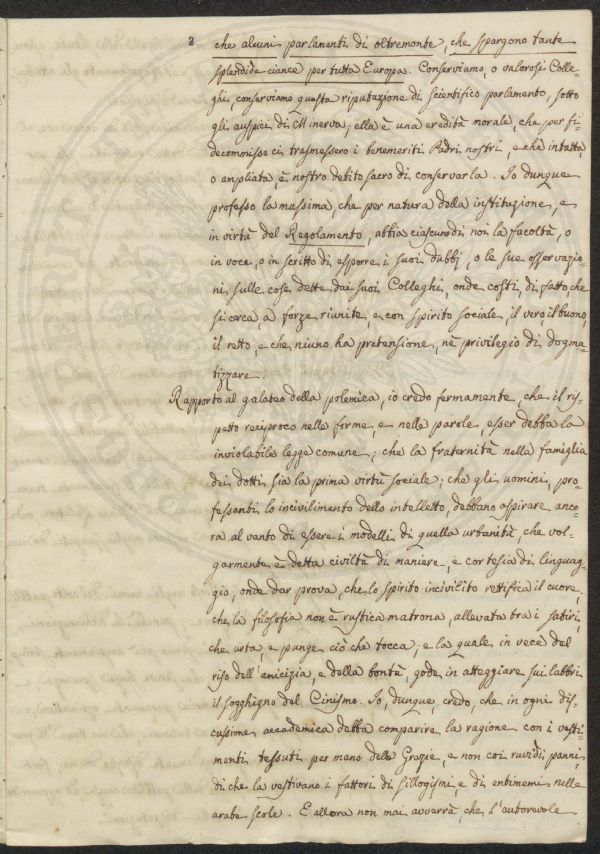 2 che alcuni parlamenti di oltremonte, che spargono tante
splendide ciance per tutta Europa. Conserviamo, o valorosi Colle-
ghi, conserviamo questa riputazione di scientifico parlamento, sotto
gli auspici di Minerva; ella è una eredità morale, che per fi-
decommisso ci trasmessero i benemeriti Padri nostri, e che intatta,
o ampliata, è nostro debito sacro di conservarla. Io dunque
professo la massima, che per natura della instituzione, e
in virtù del Regolamento, abbia ciascuno di noi la facoltà, o
in voce, o in scritto di esporre i suoi dubbj, o le sue osservazio-
ni, sulle cose dette dai suoi Colleghi, onde costì, di fatto che
si cerca, a forze riunite, e con spirito sociale, il vero, il buono,
il retto, e che niuno ha pretensione, nè privilegio di dogma-
tizzare.
Rapporto al galateo della polemica, io credo fermamente, che il ris-
petto reciproco nelle forme, e nelle parole, esser debba la
inviolabile legge comune; che la fraternità nella famiglia
dei dotti sia la prima virtù sociale; che gli uomini, pro-
fessanti lo incivilimento dello intelletto, debbano aspirare anco-
ra al vanto di essere i modelli di quella urbanità, che vol-
garmente è detta civiltà di maniere, e cortesia di linguag-
gio, onde dar prova, che lo spirito incivilito rettifica il cuore,
che la filosofia non è rustica matrona, allevata tra i satiri,
che urta, e punge ciò che tocca; e la quale in vece del
riso dell'amicizia, e della bontà, gode in atteggiare sui labbri
il sogghigno del Cinismo. Io, dunque credo, che in ogni dis-
cussione accademica debba comparire la ragione con i vesti-
menti tessuti per mano delle Grazie, e non coi ruvidi panni,
di che la vestivano i fattori di sillogismi, e di entimemi nelle
arabe scole. E allora non mai avverrà, che l'autorevole